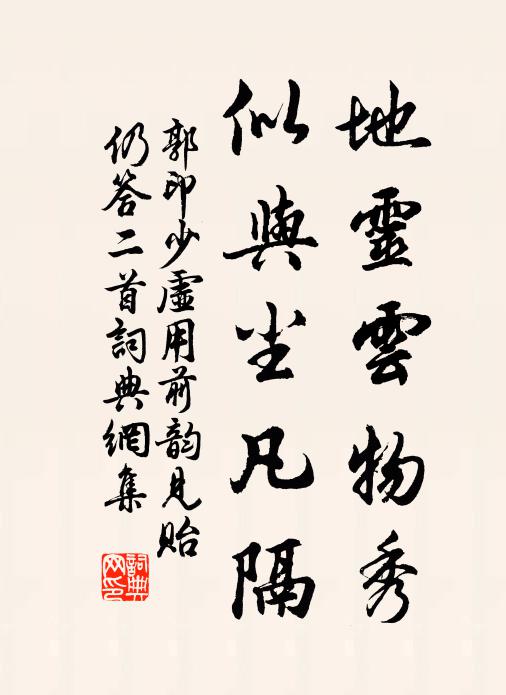 地靈雲物秀
似與尘凡隔
郭印少虛用前韵見貽
仍答二首詞典網集
詞典網印